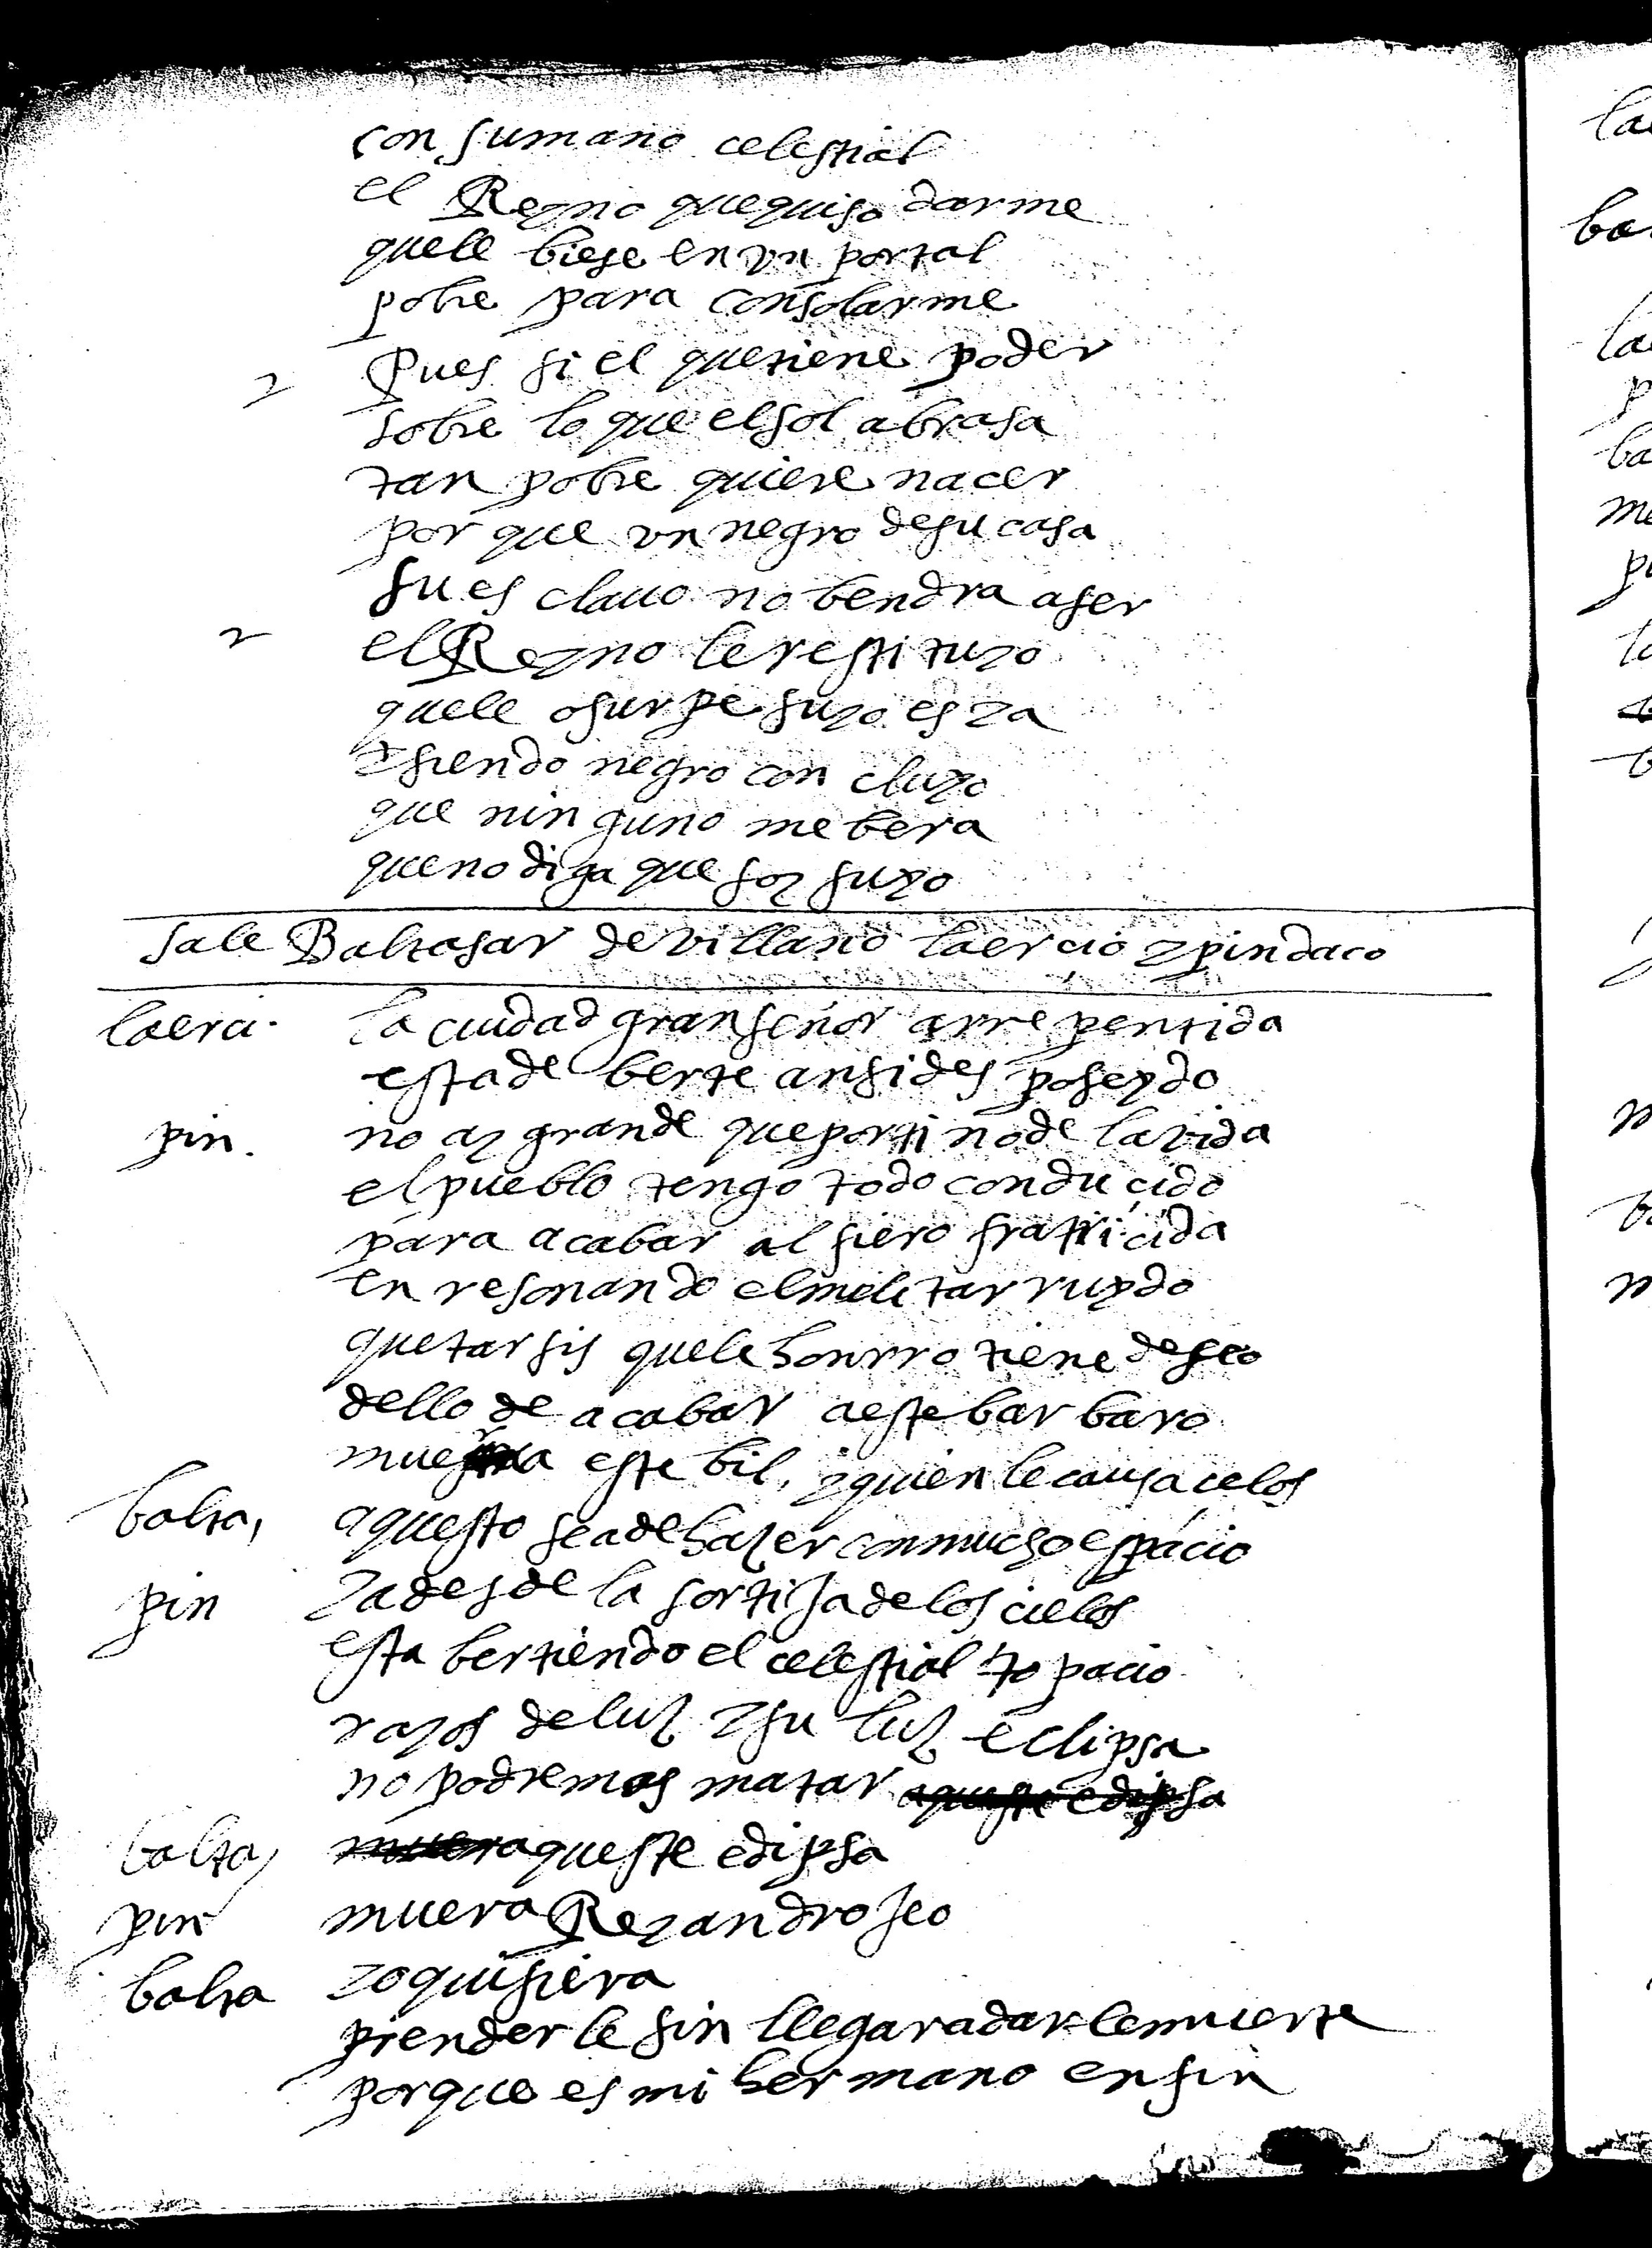 con su mano celestial
el Reyno que quiso darme
quele biese en vn portal
pobre para consolarme
Pues si el que tiene poder
sobre lo que el sol abrasa
tan pobre quiere nacer
por que vn negro de su casa
su esclauo no bendra a ser
el Reyno le restituyo
quele osurpe suyo es ya
y siendo negro concluyo
que ninguno me bera
que no diga que soy suyo
sale Baltasar de villano laercio y pindaco
laerci. la ciudad gran señor arrepentida
esta de berte ansi desposeydo
pin. no ay grande que por ti no de la vida
el pueblo tengo todo conducido
para acabar al fiero fratricida
en resonando el melitar ruydo
que tarsis quele honrro tiene deseo
dello de acabar a este barbaro
muera este bil, y quien le causa celos
balta, aquesto se a de hazer con mucho espacio
pin ya desde la sortija de los cielos
esta bertiendo el celestial topacio
rayos de luz y su luz eclipsa
no podremos matar aqueste edipsa
balta, muera aqueste edipsa
pin muera Rey androgeo
balta yo quisiera
prenderle sin llegar a darle muerte
porque es mi hermano en fin